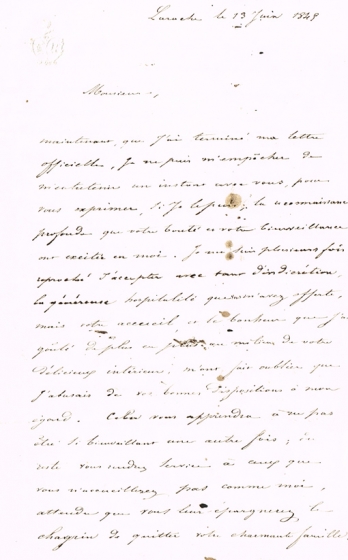 Larache le 13 Juin 1849
Monsieur,
maintenant que j'ai terminé ma lettre
officielle, Je ne puis m'empêcher de
m'entretenir un instant avec vous, pour
vous exprimer, si Je le puis, la reconnaissance
profonde que votre bonté et votre bienveillance
ont excitée en moi. Je me suis plusieurs fois
reproché d'accepter avec tant d'indiscrétion,
la généreuse hospitalité que vous m'avez offerte,
mais votre accueil, et le bonheur que j'ai
goûté de plus en plus, au milieu de votre
délicieux intérieur, m'ont fait oublier que
J'abusais de vos bonnes dispositions à mon
égard. Cela vous apprendra à ne pas
être si bienveillant une autre fois; 
vous rendrez service à ceux que
vous n'accueillerez pas comme moi,
attendu que vous leur épargnerez le
chagrin de quitter votre charmante famille,